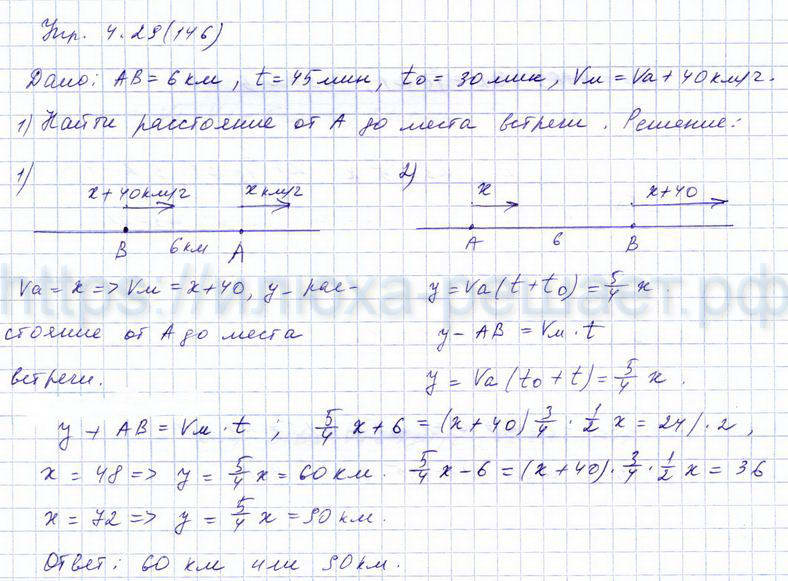 Упр. 4.29(146)
Дано: AB = 6 км, t = 45 мин, t₀ = 30 мин, Vм = Vа + 40 км/г.
1) Найти расстояние от А до места встречи. Решение:
1) x+40км/г x км/г
B 6 км A
2) x x+40
A 6 B
Vа = x => Vм = x+40, y – рас-
стояние от А до места
встречи.
y = Vа(t+t₀) = 5/4 x
y – AB = Vм · t
y = Vа(t₀ + t) = 5/4 x.
y + AB = Vм · t ; 5/4 x + 6 = (x+40) 3/4 · 1/2 x = 24 /· 2 ,
x = 48 => y = 5/4 x = 60 км. 5/4 x – 6 = (x+40) · 3/4 · 1/2 x = 36
x = 72 => y = 5/4 x = 90 км.
Ответ: 60 км или 90 км.
https://илюха-решает.рф